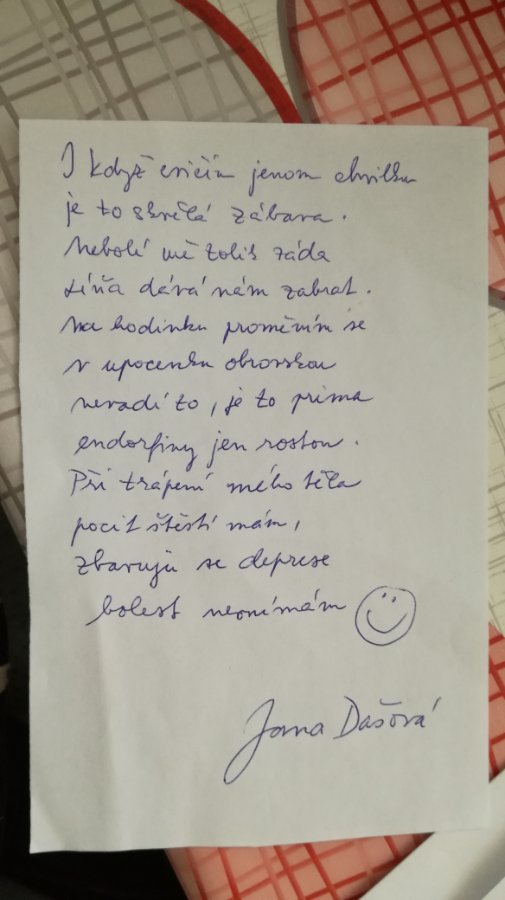 I když cvičím jenom chvilku
je to skvělá zábava.
Nebolí mě tolik záda
Líňa dává nám zabrat.
Na hodinku proměním se
v upocenku obrovskou
nevadí to, je to prima
endorfiny jen rostou.
Při trápení mého těla
pocit štěstí mám,
zbavuju se deprese
bolest nevnímám
Jana Dašová